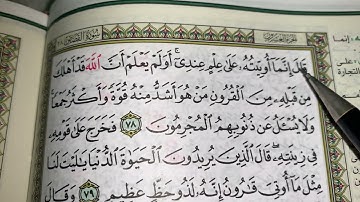 قَالَ إِنَّمَا أُوتِيتُهُۥ عَلَىٰ عِلْمٍ عِندِىٓ ۚ أَوَلَمْ يَعْلَمْ أَنَّ ٱللَّهَ قَدْ أَهْلَكَ
مِن قَبْلِهِۦ مِنَ ٱلْقُرُونِ مَنْ هُوَ أَشَدُّ مِنْهُ قُوَّةً وَأَكْثَرُ جَمْعًا ۚ
وَلَا يُسْـَٔلُ عَن ذُنُوبِهِمُ ٱلْمُجْرِمُونَ ٧٨ فَخَرَجَ عَلَىٰ قَوْمِهِۦ
فِى زِينَتِهِۦ ۖ قَالَ ٱلَّذِينَ يُرِيدُونَ ٱلْحَيَوٰةَ ٱلدُّنْيَا يَـٰلَيْتَ لَنَا
مِثْلَ مَآ أُوتِىَ قَـٰرُونُ إِنَّهُۥ لَذُو حَظٍّ عَظِيمٍ ٧٩ وَقَالَ